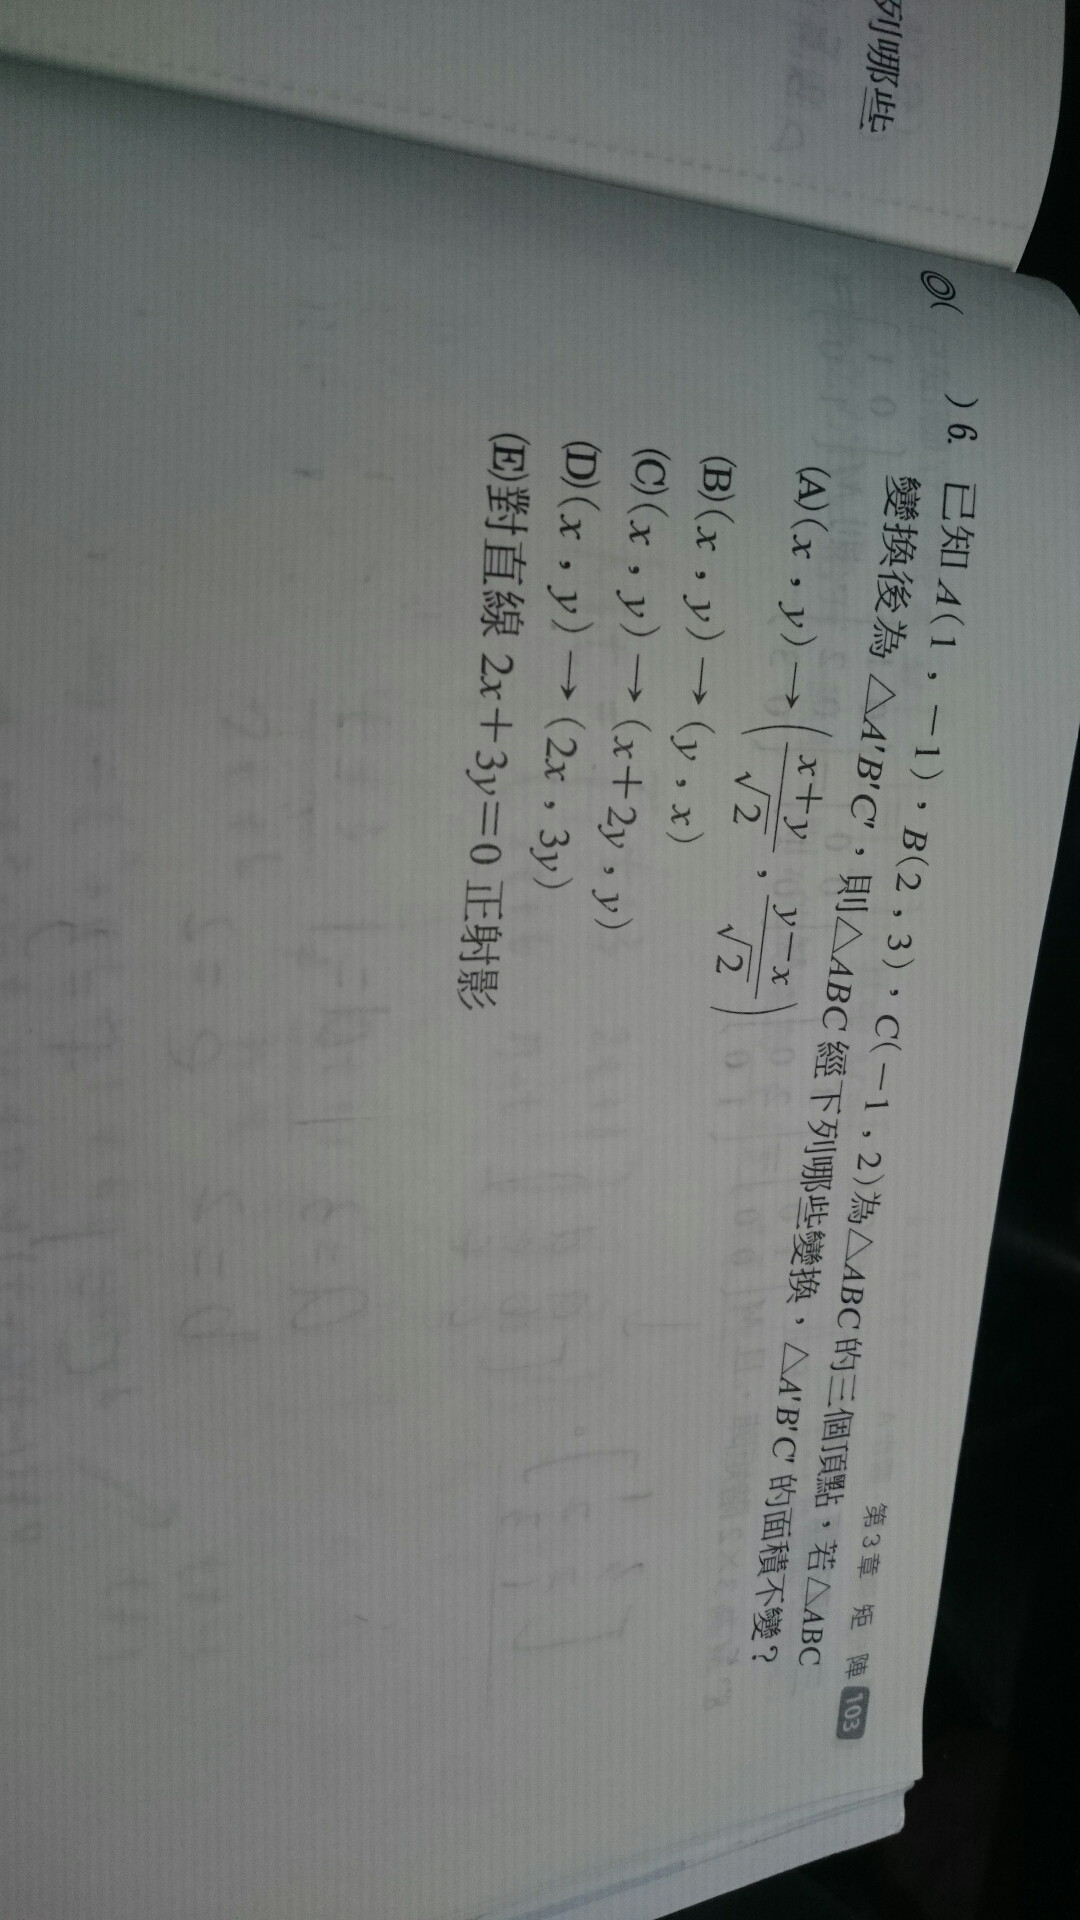 列哪些
第3章 矩 陣 103
◎( )6. 已知 A(1,-1),B(2,3),C(-1,2)為△ABC的三個頂點,若△ABC
變換後為△A'B'C',則△ABC經下列哪些變換,△A'B'C'的面積不變?
(A)(x,y)→(x+y/√2,y-x/√2)
(B)(x,y)→(y,x)
(C)(x,y)→(x+2y,y)
(D)(x,y)→(2x,3y)
(E)對直線 2x+3y=0 正射影